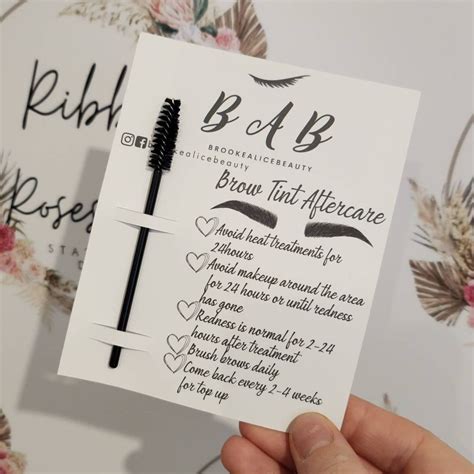 Ribb
Roses
BAB
BROOKEALICEBEAUTY
kealicebeauty
Brow Tint Aftercare
Avoid heat treatments for
24hours
Avoid makeup around the area
for 24 hours or until redness
has gone
Redness is normal for 2-24
hours after treatment
Brush brows daily
Come back every 2-4 weeks
for top up